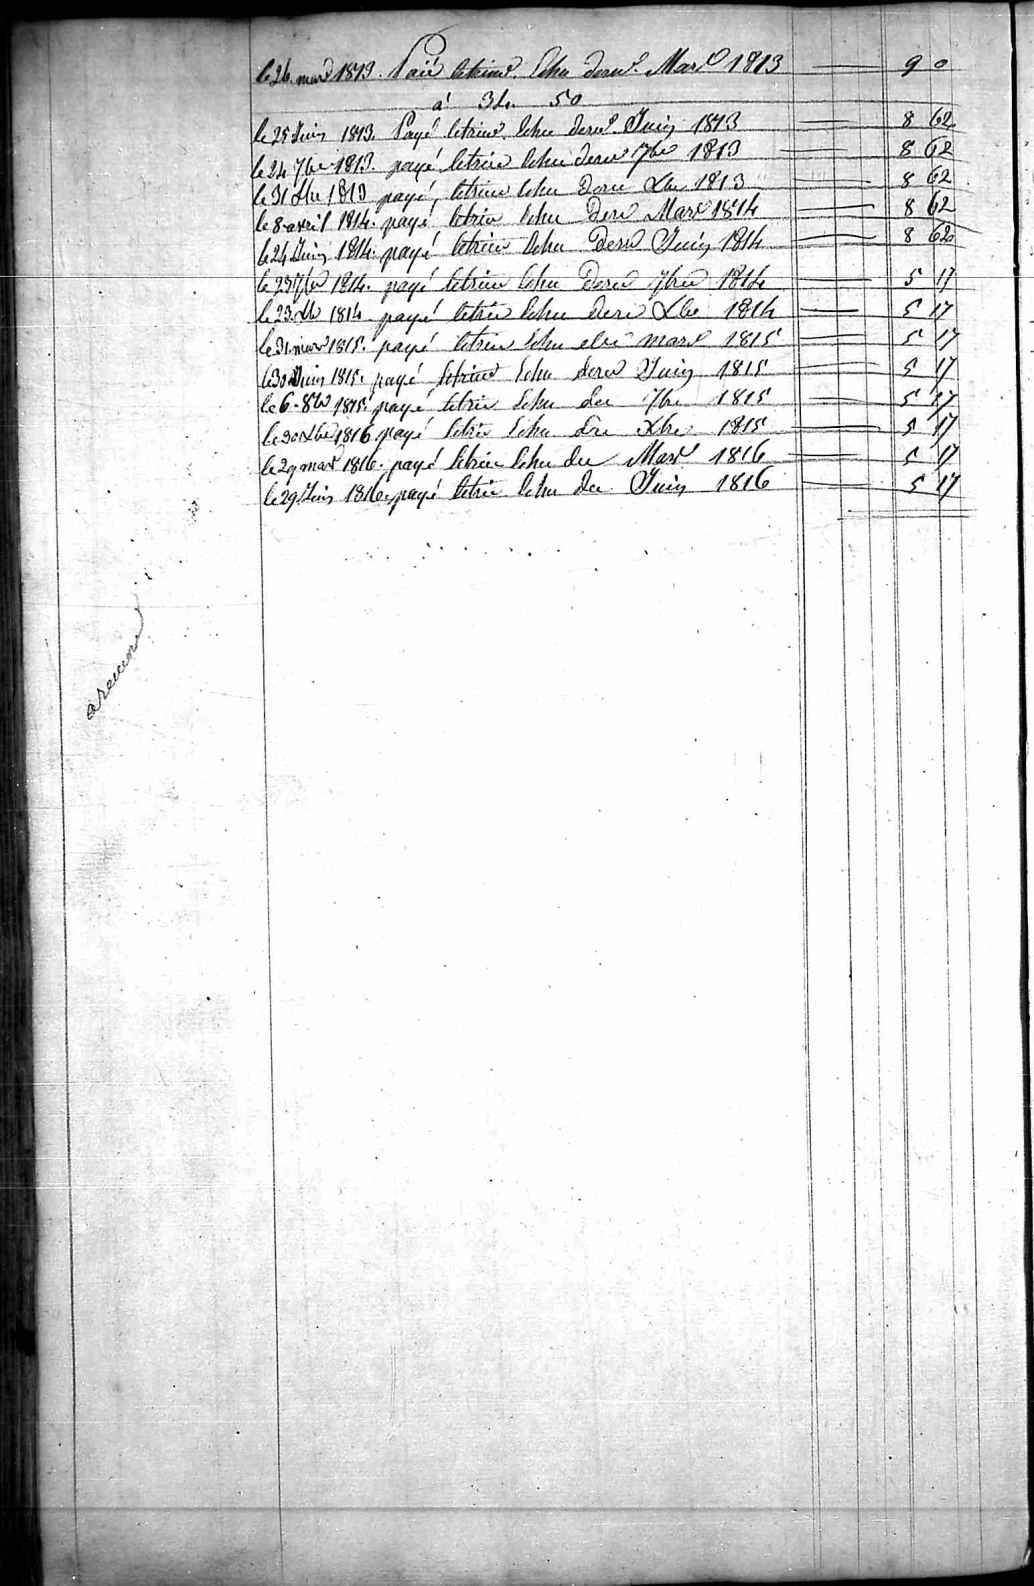 le 26 mars 1813. Paié letrimre Echu dernr. Mars 1813 9 0
à 34. 50
le 25 Juin 1813. Payé letrimre Echu dernr. Juin 1813 8 62
le 24 7bre 1813. payé letrim Echu dernr 7bre 1813 8 62
le 31 Xbre 1813 payé, letrim Echu dern Xbre 1813 8 62
le 8 avril 1814. payé letrim Echu dern Mars 1814 8 62
le 24 Juin 1814. payé letrim Echu dern Juin 1814 8 62
le 23 7bre 1814. payé letrim Echu dern 7bre 1814 5 17
le 23 Xbre 1814 payé letrim Echu dern Xbre 1814 5 17
le 31 mars 1815. payé letrim Echu mars 1815 5 17
le 30 Juin 1815. payé letrim Echu dern Juin 1815 5 17
le 6 8bre 1815. payé letrim Echu de 7bre 1815 5 17
le 30 Xbre 1816 payé letrim Echu de Xbre 1815 5 17
le 29 mars 1816. payé letrim Echu de Mars 1816 5 17
le 29 Juin 1816. payé letrim Echu de Juin 1816 5 17